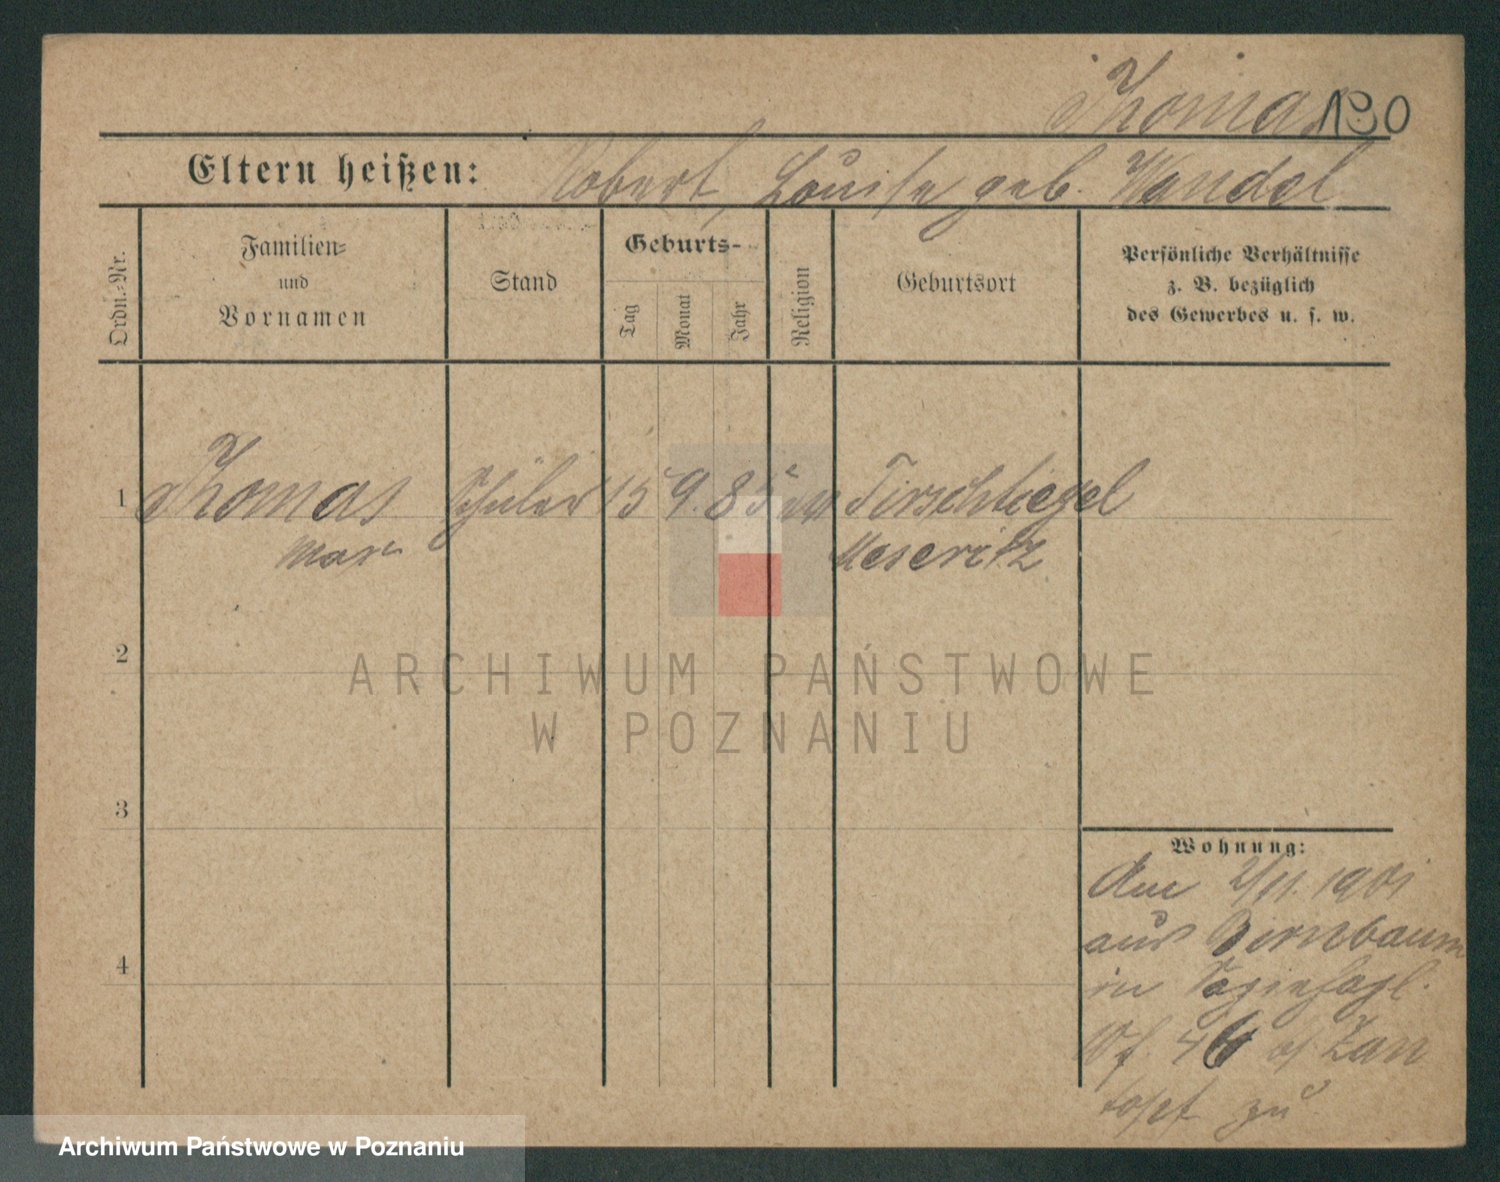 Thomas 130
Eltern heißen: Robert, Louise geb. Wandel
Ordn.-Nr.
Familien-
und
Vornamen
Stand
Geburts-
Tag
Monat
Jahr
Religion
Geburtsort
Persönliche Verhältnisse
z. B. bezüglich
des Gewerbes u. s. w.
1 Thomas Schüler 15 9. 85 ev Tirschtiegel
Max Meseritz
2
ARCHIWUM PAŃSTWOWE
W POZNANIU
3
Wohnung:
Am 2/11. 1901
aus Birnbaum
in
4
46 b/ Zan
zu
Archiwum Państwowe w Poznaniu